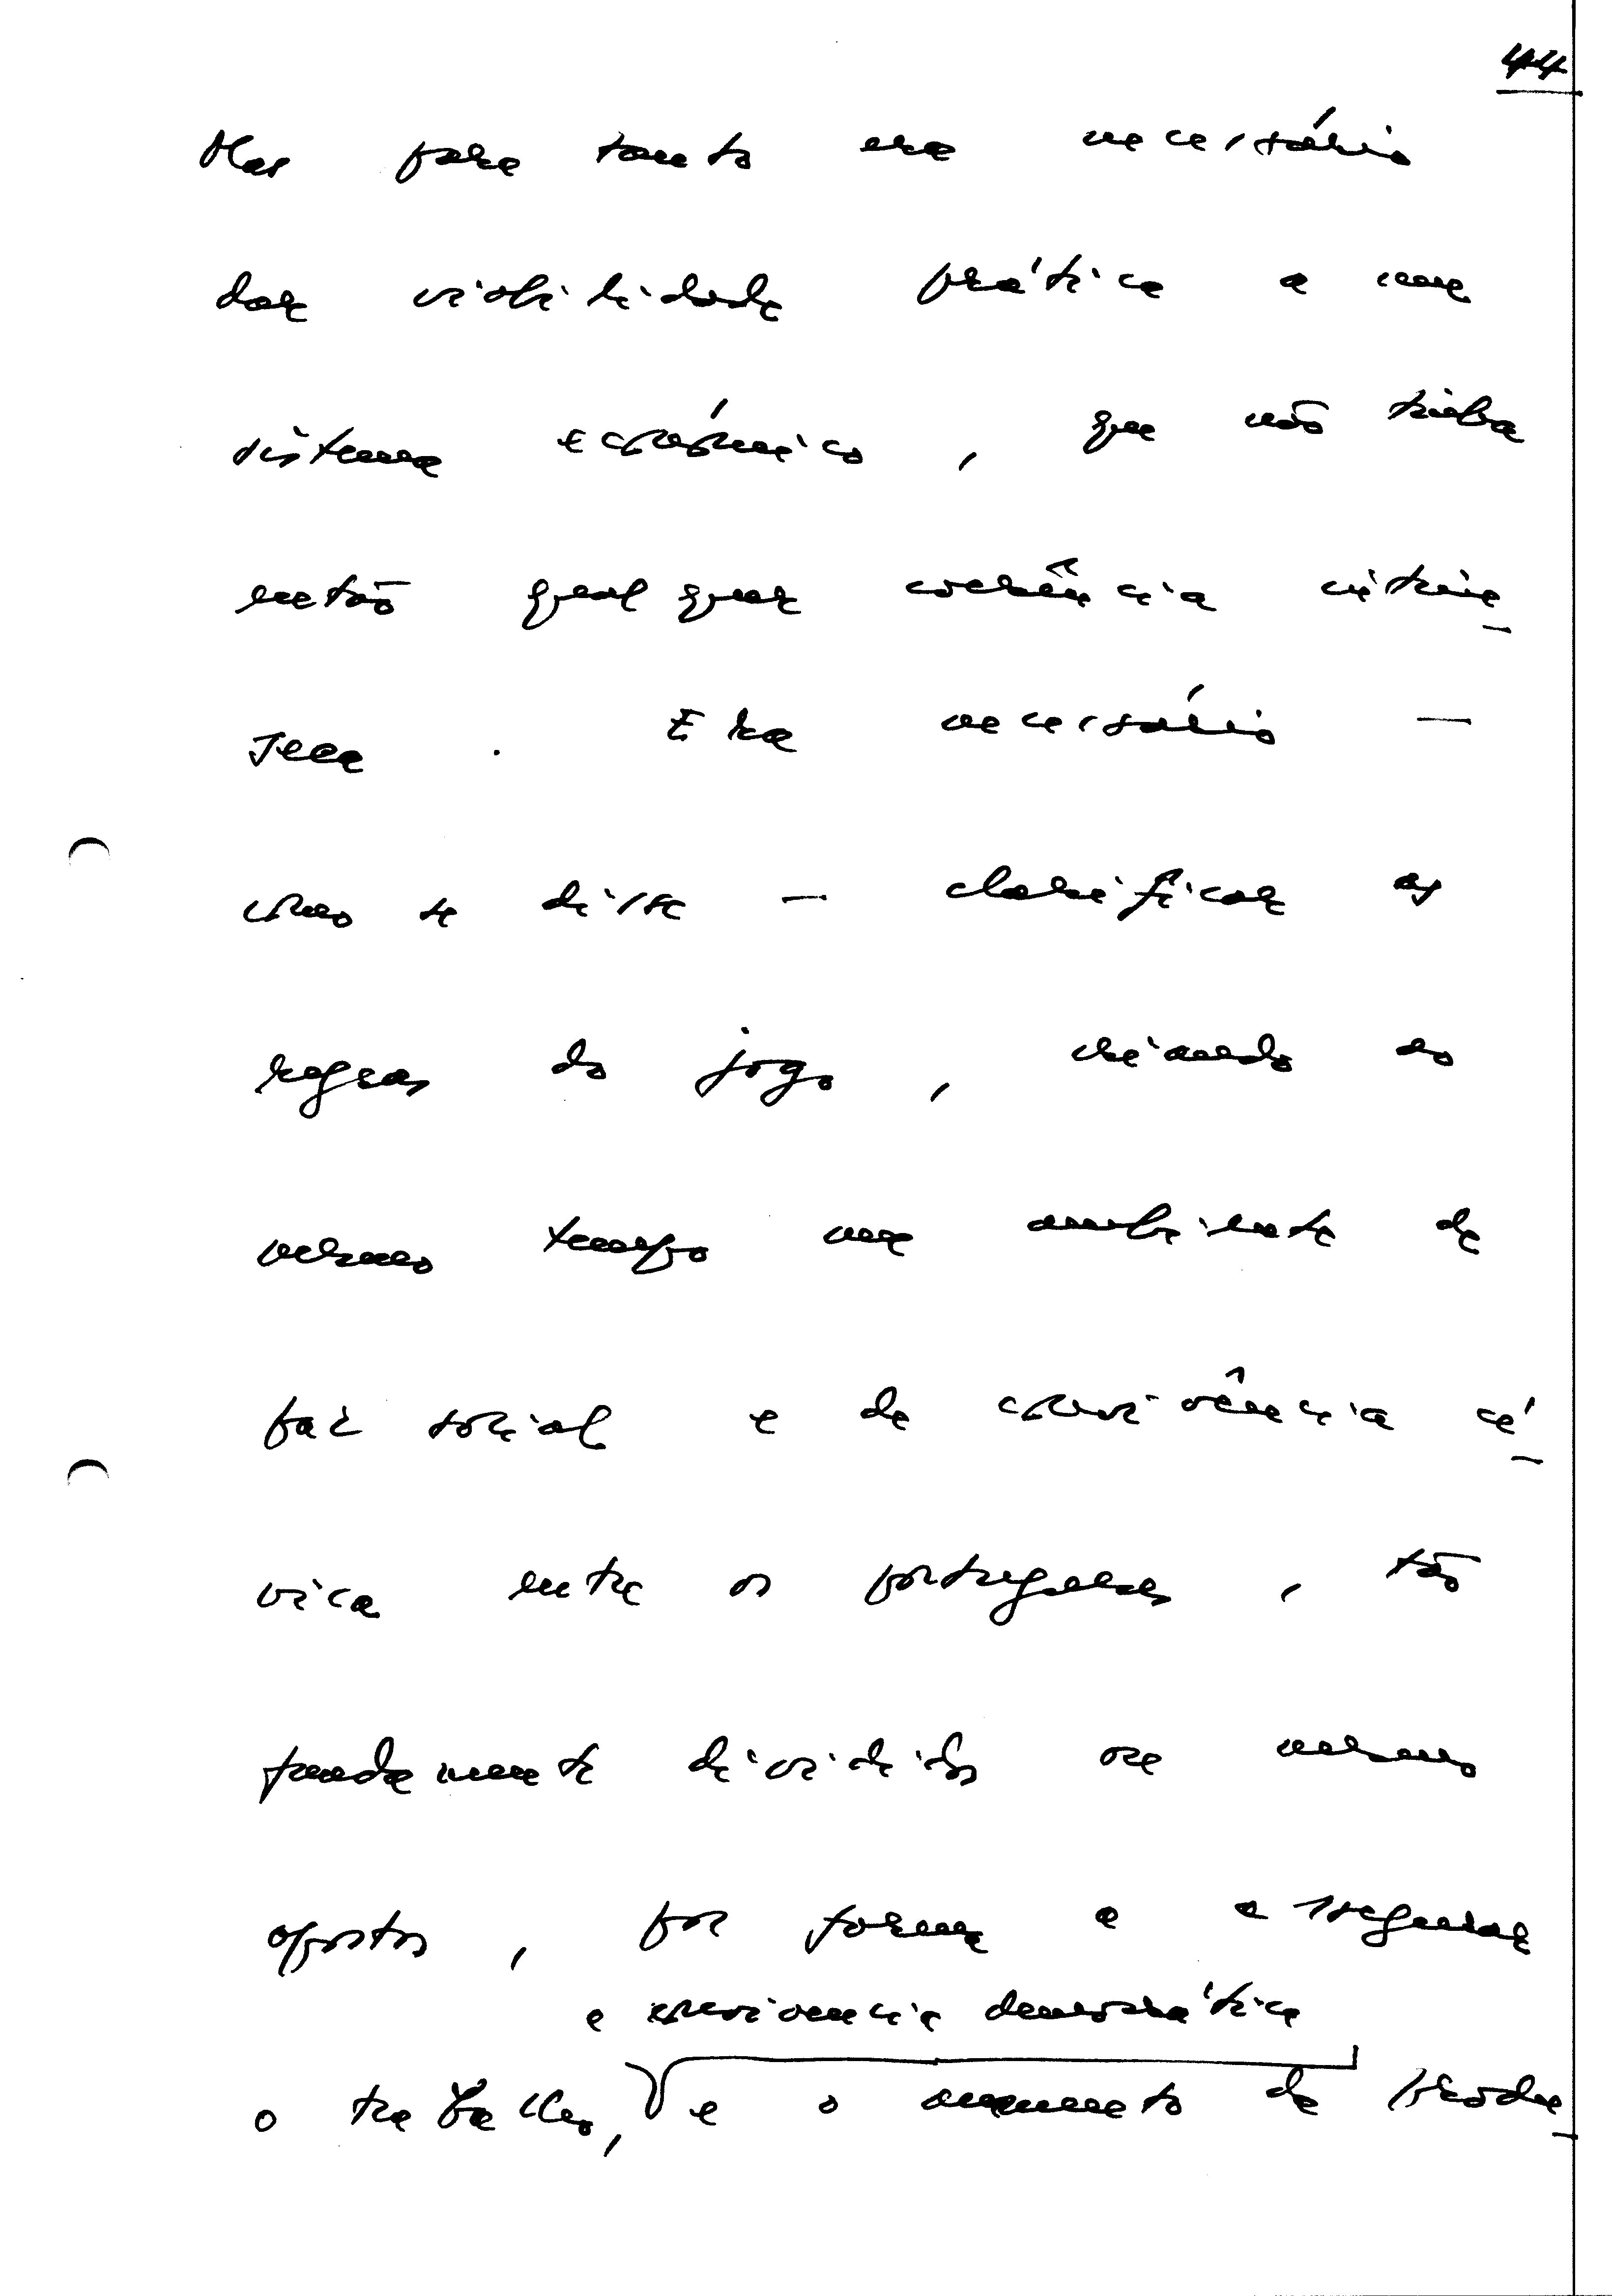 44
Mas para tanto era necessário
dar viabilidade prática a um
sistema económico, que não tinha
então qualquer coerência intrín-
seca. Era necessário —
como se disse — clarificar as
regras do jogo, criando ao
mesmo tempo um ambiente de
paz social e de convivência cí-
vica entre os portugueses, tão
fundamente divididos no mesmo
opostos, por forma a assegurar
a convivencia democrática
o trabalho, e o aumento de produ-